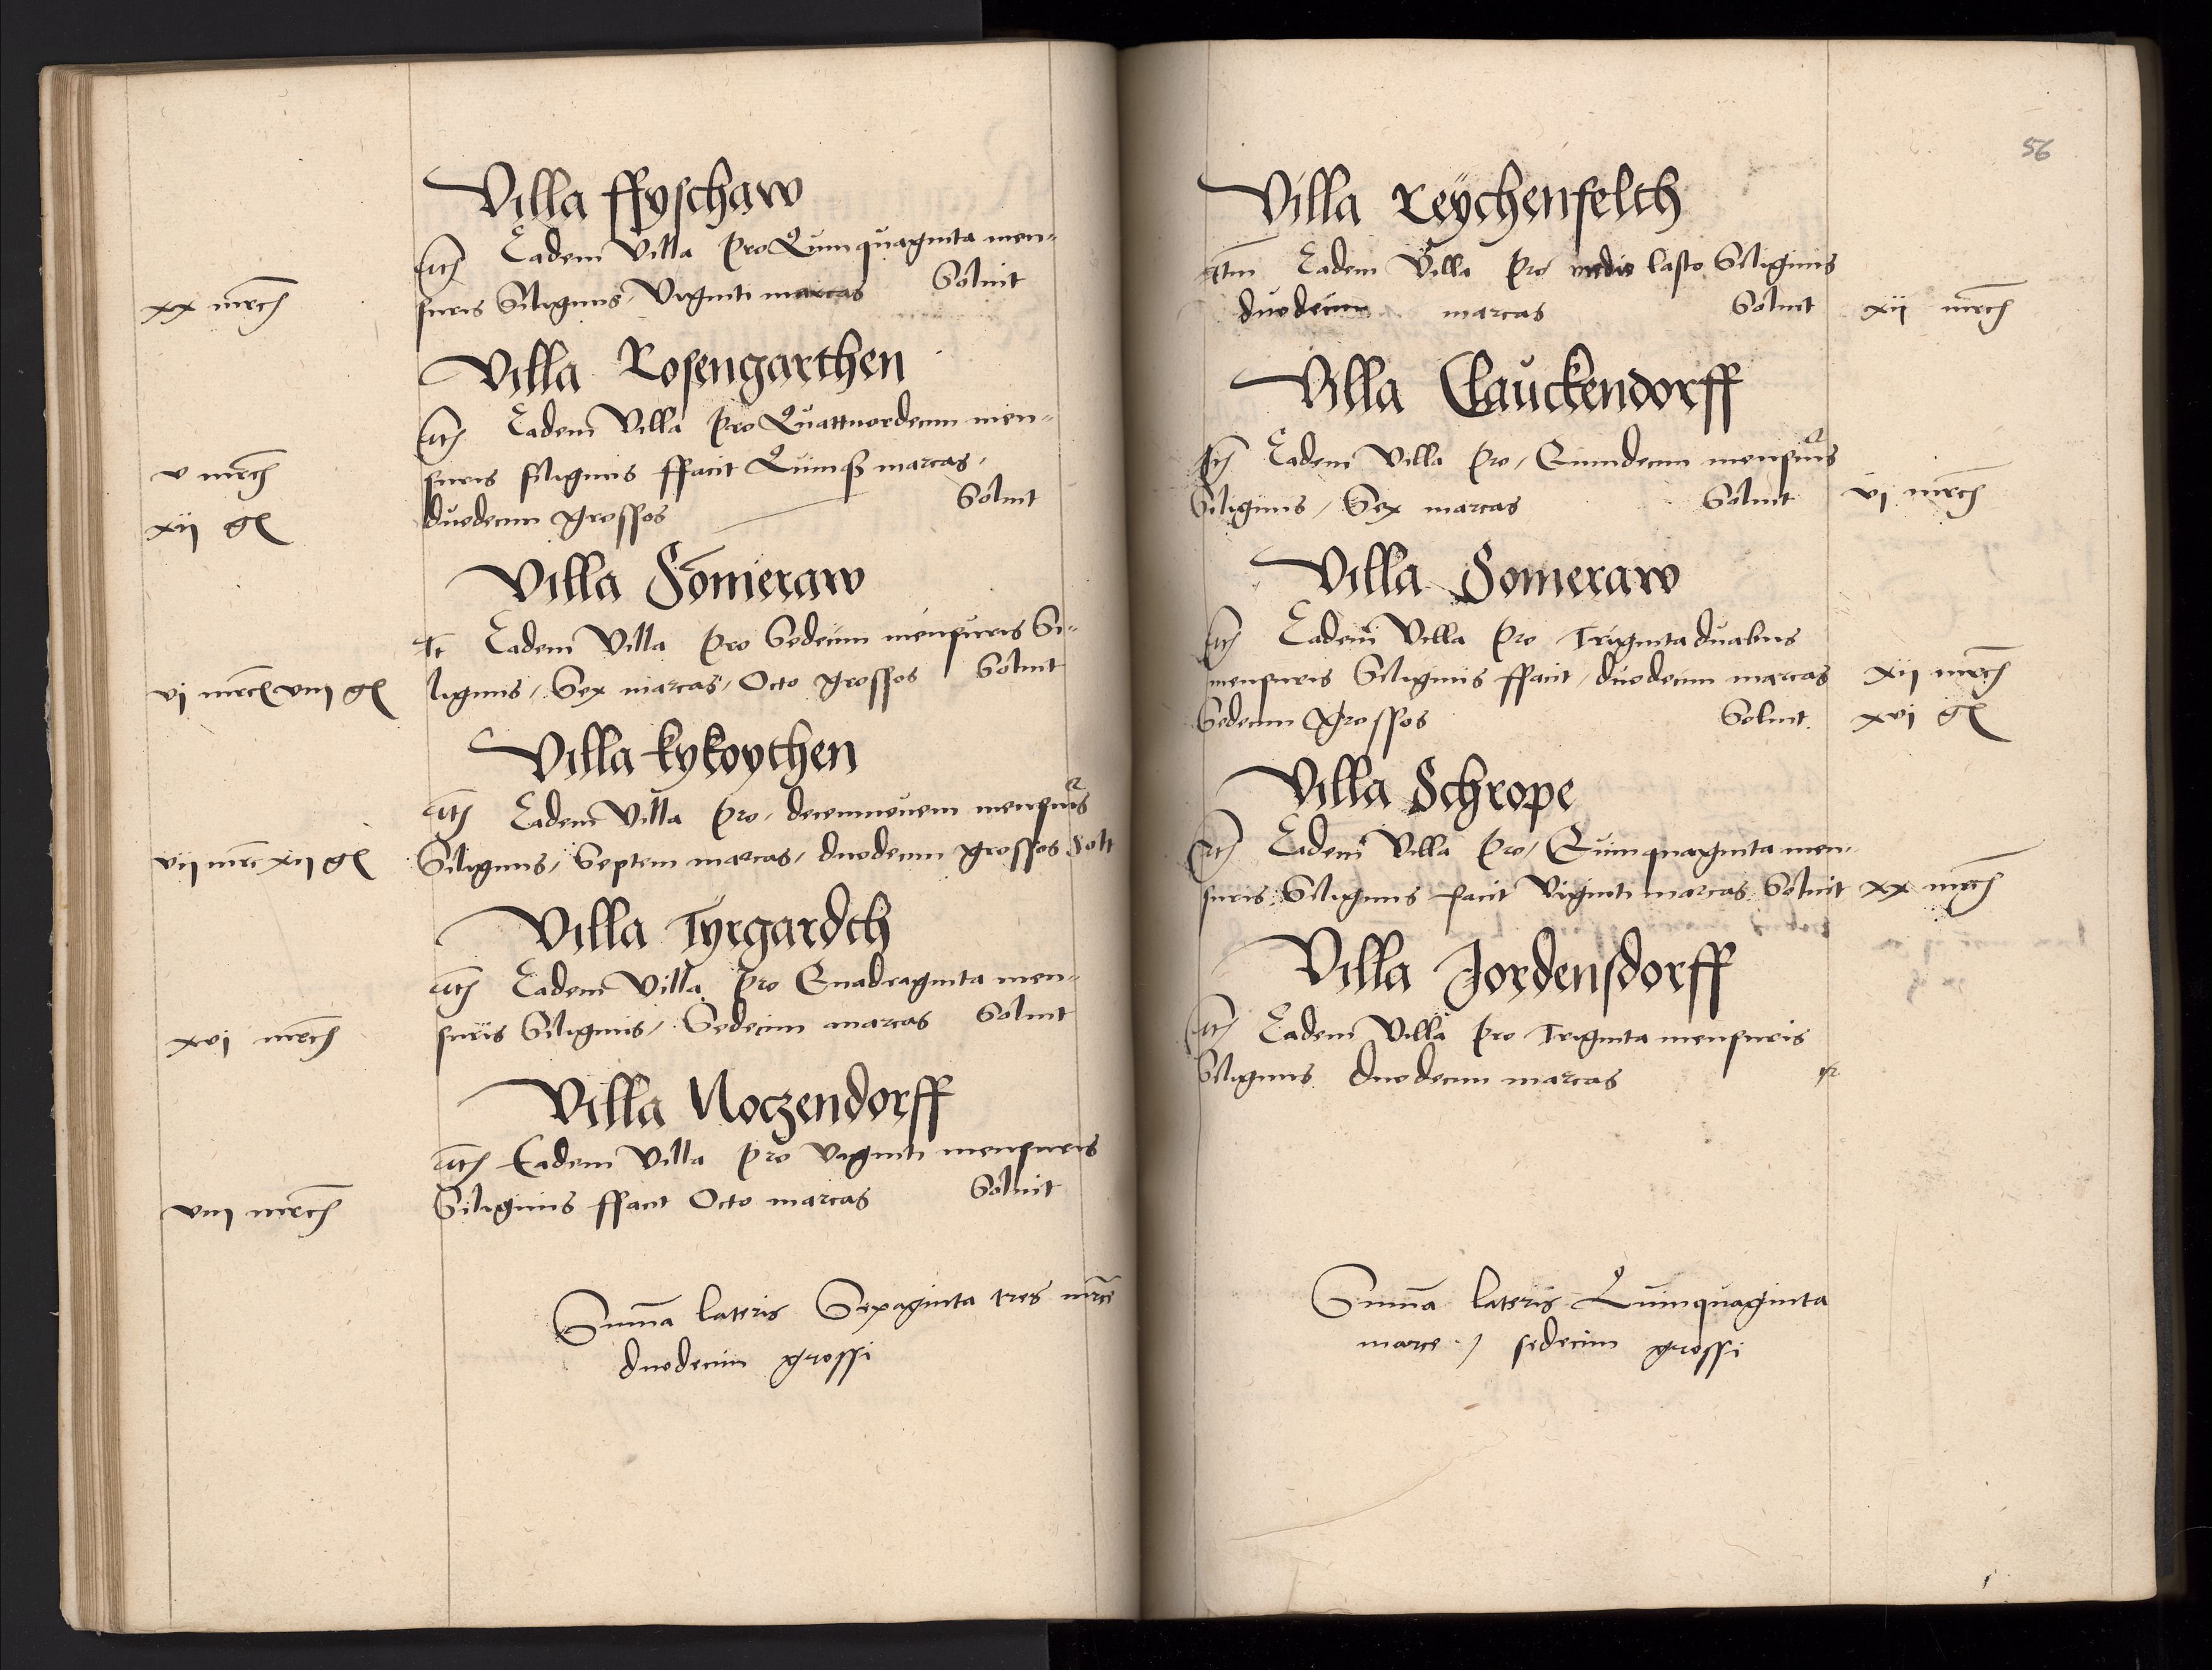 Villa ffyschaw
Eadem Villa Pro Quinquaginta men-
xx mrc suris Siliginis Viginti marcas Soluit
Villa Rosengarthen
Eadem Villa Pro Quattuordecim men-
v mrc suris siliginis ffacit Quinqz marcas,
xij gl duodecim grossos Soluit
Villa Someraw
It Eadem Villa Pro Sedecim mensuris Si-
vj mrc viij gl liginis, Sex marcas, Octo grossos Soluit
Villa kykoythen
Itm Eadem Villa Pro, decemnouem mensuris
vij mrc xij gl Siliginis, Septem marcas, duodecim grossos Solt
Villa Tyrgardth
Itm Eadem Villa Pro Quadraginta men-
xvj mrc suris Siliginis, Sedecim marcas Soluit
Villa Noczendorff
Itm Eadem Villa Pro Viginti mensuris
viij mrc Siliginis ffacit Octo marcas Soluit
Summa lateris Sexaginta tres mrce
duodecim grossi
56
Villa Reychenfelth
Itm Eadem Villa Pro medio lasto Siliginis
duodecim marcas Soluit xij mrc
Villa Clauckendorff
Itm Eadem Villa Pro, Quindecim mensuris
Siliginis, Sex marcas Soluit vj mrc
Villa Someraw
Itm Eadem Villa Pro Triginta duabus
mensuris Siliginis ffacit, duodecim marcas xij mrc
Sedecim grossos Soluit xvj gl
Villa Schrope
Itm Eadem Villa Pro, Quinquaginta men-
suris Siliginis facit Viginti marcas Soluit xx mrc
Villa Jordensdorff
Itm Eadem Villa Pro Triginta mensuris
Siliginis duodecim marcas
Summa lateris Quinquaginta
marce, sedecim grossi